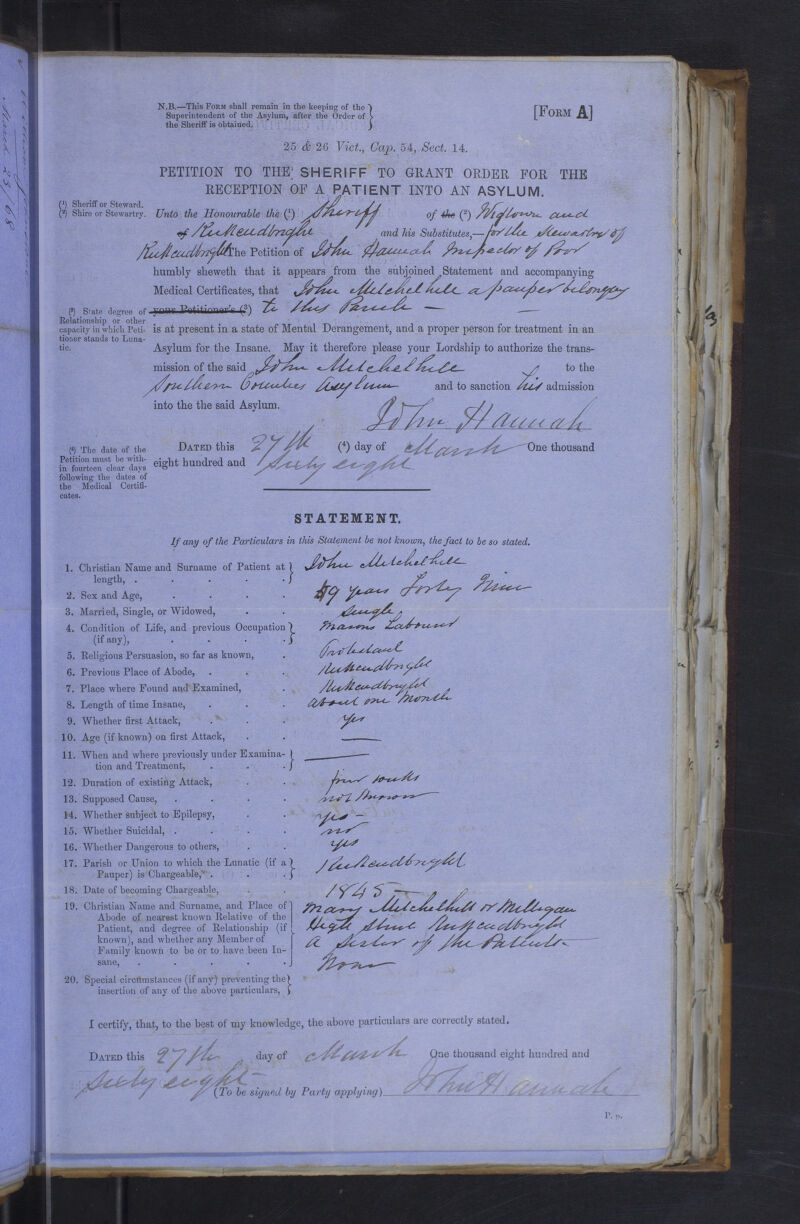 N.B.—This Form shall remain in the keeping of the
Superintendent of the Asylum, after the Order of
the Sheriff is obtained.
[Form A]
25 & 26 Vict., Cap. 54, Sect. 14.
PETITION TO THE SHERIFF TO GRANT ORDER FOR THE
RECEPTION OF A PATIENT INTO AN ASYLUM.
(¹) Sheriff or Steward.
(²) Shire or Stewartry.
Unto the Honourable the (¹) Sheriff of the (²) Wigtown and
of Kirkcudbright and his Substitutes,— for the Stewartry of
Kirkcudbright The Petition of John Hannah Inspector of Poor
humbly sheweth that it appears from the subjoined Statement and accompanying
Medical Certificates, that John Mitchelhill a pauper belonging
(³) State degree of
Relationship or other
capacity in which Peti-
tioner stands to Luna-
tic.
your Petitioner's (³) to this Parish —
is at present in a state of Mental Derangement, and a proper person for treatment in an
Asylum for the Insane. May it therefore please your Lordship to authorize the trans-
mission of the said John Mitchelhill to the
Southern Counties Asylum and to sanction his admission
into the the said Asylum.
John Hannah
(⁴) The date of the
Petition must be with-
in fourteen clear days
following the dates of
the Medical Certifi-
cates.
Dated this 27th (⁴) day of March One thousand
eight hundred and Sixty eight
STATEMENT.
If any of the Particulars in this Statement be not known, the fact to be so stated.
1. Christian Name and Surname of Patient at
length, . John Mitchelhill
2. Sex and Age, 49 years Forty Nine
3. Married, Single, or Widowed, Single
4. Condition of Life, and previous Occupation
(if any), Masons Labourer
5. Religious Persuasion, so far as known, Protestant
6. Previous Place of Abode, Kirkcudbright
7. Place where Found and Examined, Kirkcudbright
8. Length of time Insane, about one Month
9. Whether first Attack, yes
10. Age (if known) on first Attack, —
11. When and where previously under Examina-
tion and Treatment, —
12. Duration of existing Attack, four weeks
13. Supposed Cause, not known
14. Whether subject to Epilepsy, yes —
15. Whether Suicidal, no
16. Whether Dangerous to others, yes
17. Parish or Union to which the Lunatic (if a
Pauper) is Chargeable, Kirkcudbright
18. Date of becoming Chargeable, 1845 —
19. Christian Name and Surname, and Place of
Abode of nearest known Relative of the
Patient, and degree of Relationship (if
known), and whether any Member of
Family known to be or to have been In-
sane,
Mary Mitchelhill or Milligan
High Street Kirkcudbright
a Sister of the Patients —
None
20. Special circumstances (if any) preventing the
insertion of any of the above particulars,
I certify, that, to the best of my knowledge, the above particulars are correctly stated.
Dated this 27th day of March One thousand eight hundred and
Sixty eight (To be signed by Party applying) John Hannah
P. p.